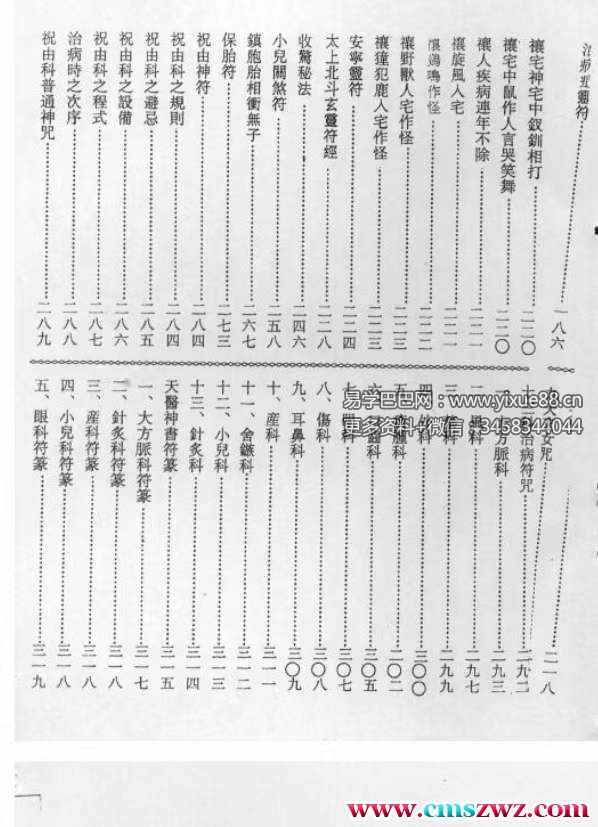 靈符……一八六
禳宅神宅中釵釧相打……二二〇
禳宅中鼠作人言哭笑舞……二二〇
禳人疾病連年不除……二二一
禳旋風入宅……二二一
禳鷄鳴作怪……二二二
禳野獸入宅作怪……二二三
禳獐犯鹿入宅作怪……二二三
安寧靈符……二二四
太上北斗玄靈符經……二二八
收驚秘法……二四六
小兒關煞符……二五八
鎮胞胎相衝無子……二六七
保胎符……二七三
祝由神符……二八四
祝由科之規則……二八四
祝由科之避忌……二八五
祝由科之設備……二八六
祝由科之程式……二八七
治病時之次序……二八八
祝由科普通神咒……二八九
女咒……二一八
治病符咒……二九二
方脈科……二九三
二、風科……二九九
三、科……二九九
四、科……三〇〇
五、腫科……三〇二
六、科……三〇五
七、科……三〇七
八、傷科……三〇八
九、耳鼻科……三〇九
十、產科……三一一
十一、舍鏃科……三一二
十二、小兒科……三一三
十三、針灸科……三一四
天醫神書符篆……三一五
一、大方脈科符篆……三一七
二、針灸科符篆……三一八
三、產科符篆……三一八
四、小兒科符篆……三一八
五、眼科符篆……三一九
易学巴巴网：www.yixue88.cn
更多资料+微信：3458344044
www.cmszwz.com